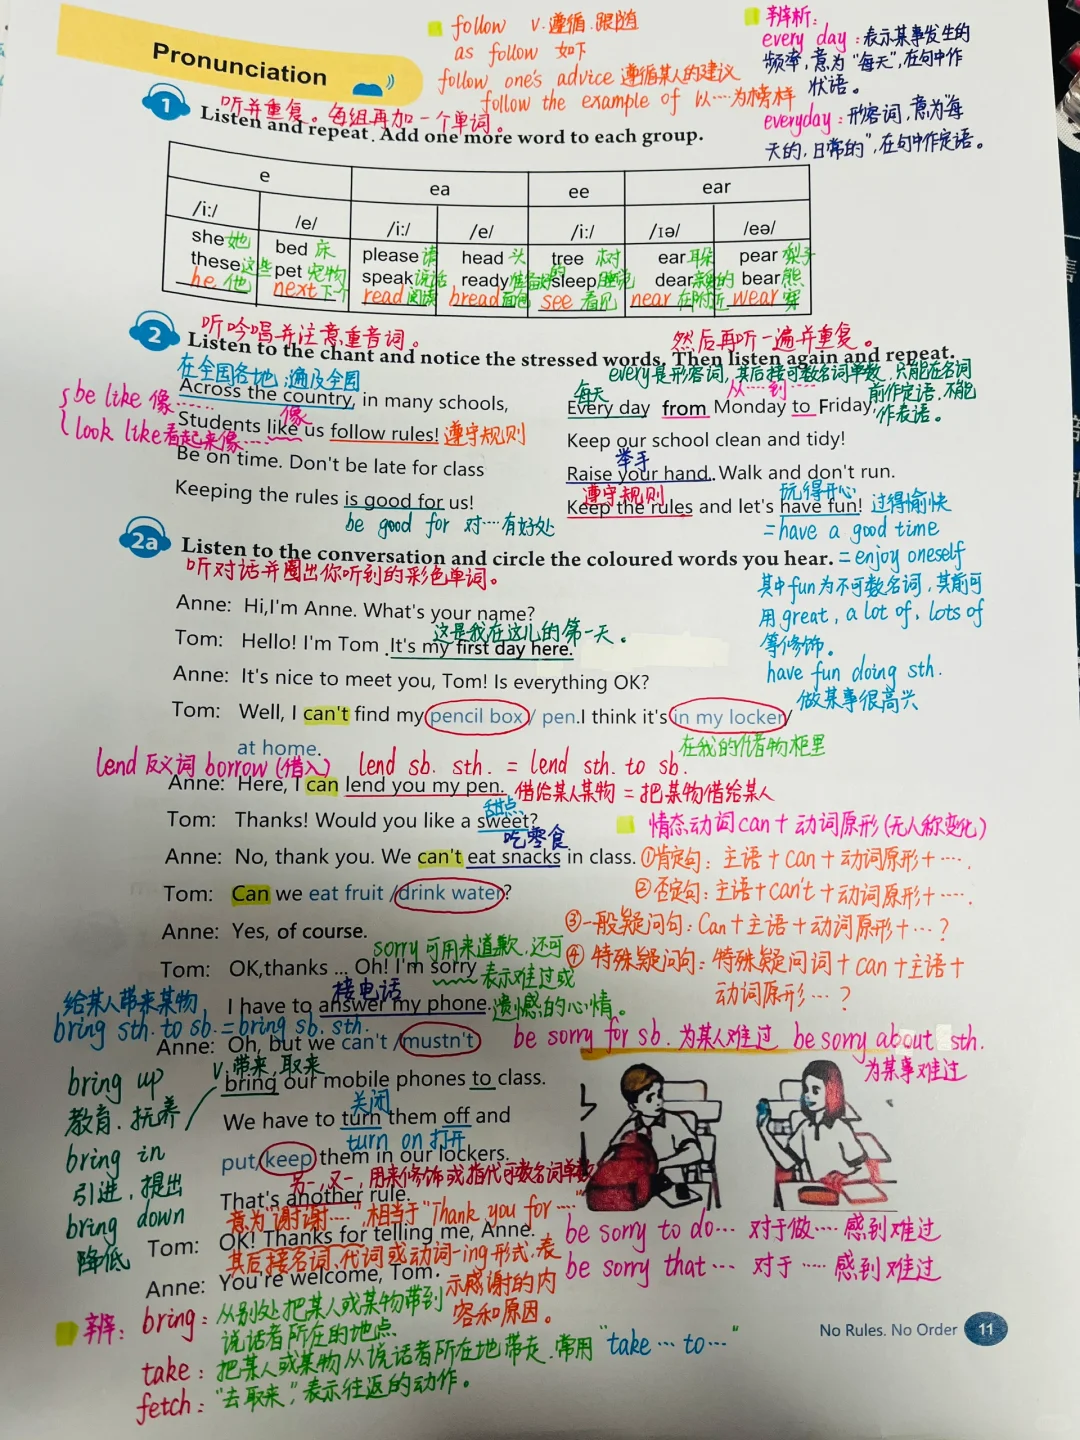 follow v.遵循.跟随
as follow 如下
follow one's advice 遵循某人的建议
follow the example of 以…为榜样
辨析:
every day:表示某事发生的
频率,意为"每天",在句中作
状语。
everyday:形容词,意为"每
天的,日常的",在句中作定语。
Pronunciation
1
听并重复。每组再加一个单词。
Listen and repeat. Add one more word to each group.
e ea ee ear
/i:/ /e/ /i:/ /e/ /i:/ /ɪə/ /eə/
she她 bed 床 please请 head 头 tree 树 ear耳朵 pear 梨子
these这些 pet 宠物 speak说话 ready准备好的 sleep睡觉 dear亲爱的 bear熊
he 他 next下个 read阅读 bread面包 see 看见 near 在附近 wear 穿
2
听吟唱并注意重音词。 然后再听一遍并重复。
Listen to the chant and notice the stressed words. Then listen again and repeat.
在全国各地;遍及全国
Across the country, in many schools,
be like 像……
像
Students like us follow rules! 遵守规则
look like看起来像……
Be on time. Don't be late for class
Keeping the rules is good for us!
be good for 对…有好处
every是形容词,其后接可数名词单数,只能在名词
前作定语,不能
作表语。
每天 从…到…
Every day from Monday to Friday,
Keep our school clean and tidy!
举手
Raise your hand. Walk and don't run.
遵守规则 玩得开心
Keep the rules and let's have fun! 过得愉快
=have a good time
=enjoy oneself
其中fun为不可数名词,其前可
用great, a lot of, lots of
等修饰。
have fun doing sth.
做某事很高兴
2a
Listen to the conversation and circle the coloured words you hear.
听对话并圈出你听到的彩色单词。
Anne: Hi,I'm Anne. What's your name?
这是我在这儿的第一天。
Tom: Hello! I'm Tom .It's my first day here.
Anne: It's nice to meet you, Tom! Is everything OK?
Tom: Well, I can't find my pencil box / pen.I think it's in my locker/
在我的储物柜里
at home.
lend 反义词 borrow (借入) lend sb. sth. = lend sth. to sb.
Anne: Here, I can lend you my pen. 借给某人某物 = 把某物借给某人
甜点
Tom: Thanks! Would you like a sweet?
吃零食
Anne: No, thank you. We can't eat snacks in class.
Tom: Can we eat fruit /drink water?
Anne: Yes, of course.
情态动词can+动词原形(无人称变化)
①肯定句:主语+can+动词原形+….
②否定句:主语+can't+动词原形+….
③一般疑问句:Can+主语+动词原形+…?
④特殊疑问句:特殊疑问词+can+主语+
动词原形…?
sorry可用来道歉,还可
表示难过或
遗憾的心情。
Tom: OK,thanks ... Oh! I'm sorry
接电话
I have to answer my phone.
给某人带来某物
bring sth. to sb. =bring sb. sth.
Anne: Oh, but we can't /mustn't
be sorry for sb. 为某人难过 be sorry about sth.
为某事难过
v.带来,取来
bring our mobile phones to class.
关闭
We have to turn them off and
turn on 打开
put/keep them in our lockers.
另一,又一,用来修饰或指代可数名词单数
That's another rule.
意为"谢谢…",相当于"Thank you for…"
Tom: OK! Thanks for telling me, Anne.
其后接名词、代词或动词-ing形式,表
示感谢的内
容和原因。
Anne: You're welcome, Tom.
bring up
教育.抚养
bring in
引进,提出
bring down
降低
be sorry to do… 对于做…感到难过
be sorry that… 对于……感到难过
辨:bring:从别处把某人或某物带到
说话者所在的地点
take:把某人或某物从说话者所在地带走.常用"take…to…"
fetch:"去取来",表示往返的动作。
No Rules. No Order 11